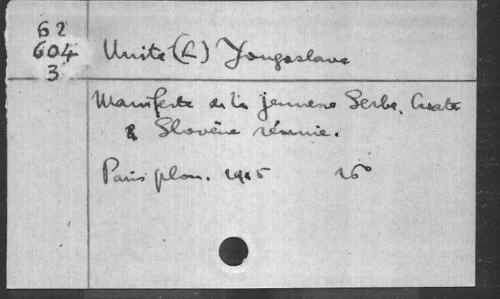 62
604
3
Unité (L') Yougoslave
Manifeste de la jeunesse Serbe, Croate
& Slovène réunie.
Paris plon. 1915 16°